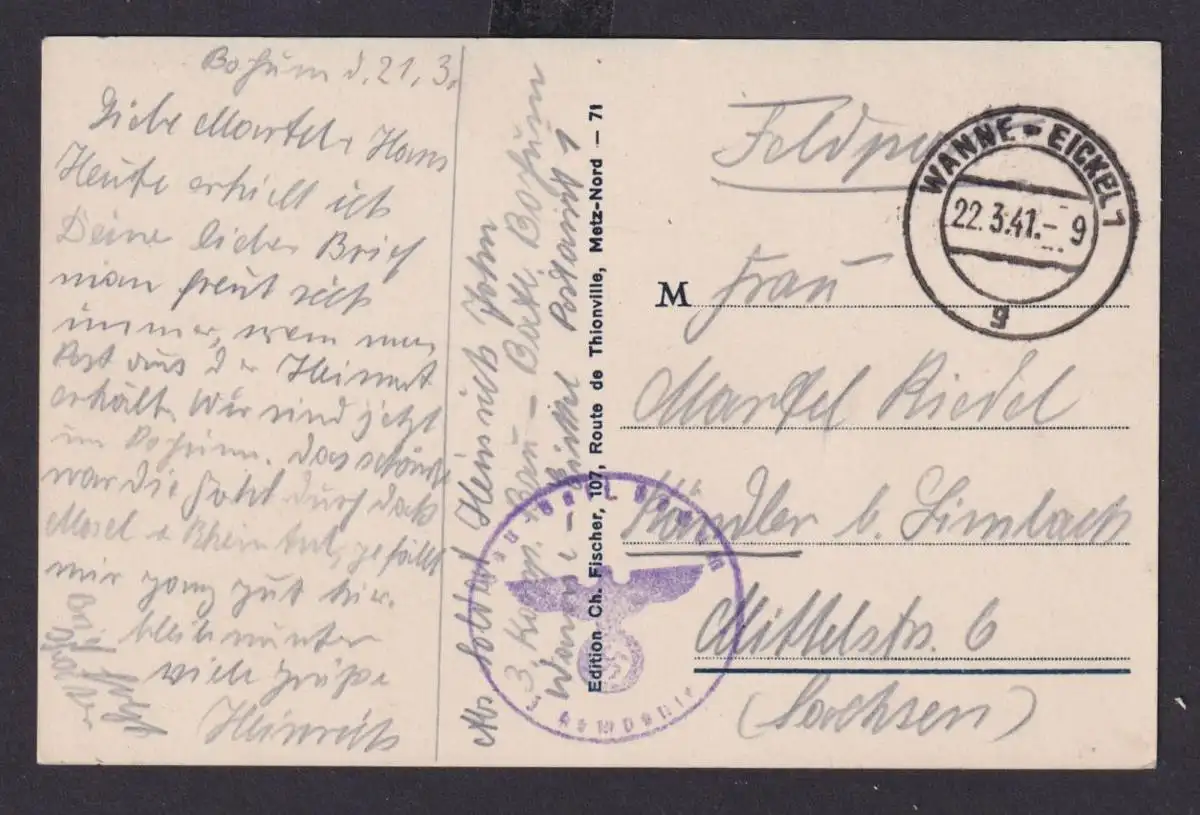 Bochum d. 21.3.
Liebe Martel u. Hans
Heute erhielt ich
Deine lieben Brief
man freut sich
immer, wenn man
Post aus der Heimat
erhält. Wir sind jetzt
in Bochum. Das schönste
war die Fahrt durch das
Mosel u Rheintal, gefällt
mir ganz gut hier.
bleib munter
viele Grüße
Heinrich
Abs. Soldat Heinrich John
3. Komp. Bau-Batl. Bochum
Wanne-Eickel Postamt 1
Edition Ch. Fischer, 107, Route de Thionville, Metz-Nord — 71
Feldpost
WANNE-EICKEL 1
22.3.41.-9
g
M Frau
Martel Riedel
Kändler b. Limbach
Mittelstr. 6
(Sachsen)